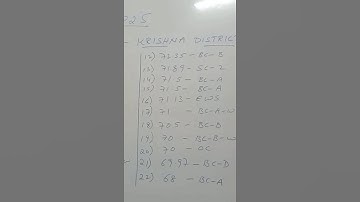 225
- KRISHNA DISTRIC
12) 72.35 - BC-B
13) 71.89 - SC-2
14) 71.5 - BC-A
15) 71.5 - BC-A
16) 71.13 - EWS
17) 71 - BC-A-W
18) 70.5 - BC-D
19) 70 - BC-B-W
20) 70 - OC
21) 69.92 - BC-D
22) 68 - BC-A